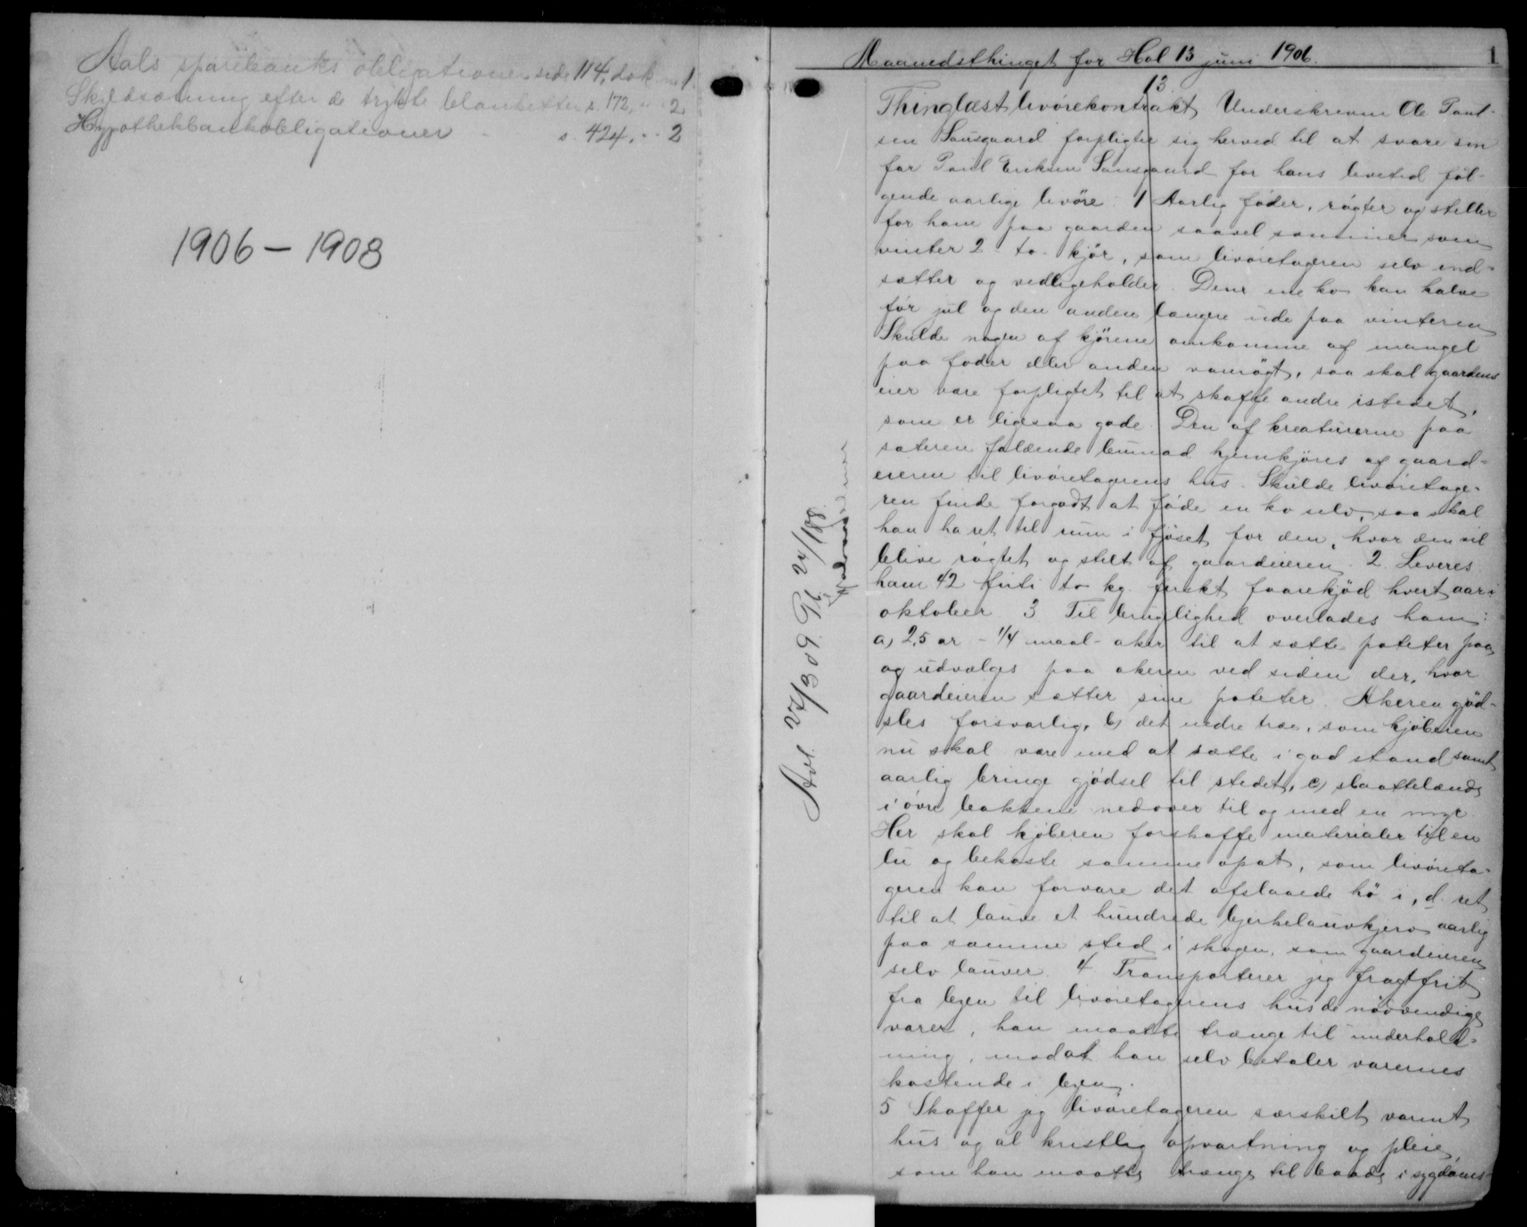 Aals sparebanks obligationer side 114, dok 1
Skjødsætning efter de trykte blanketter s. 172, " 2
Hypothekbankobligationer - s. 424. - " 2
1906 - 1908
Maanedsthinget for Hol 13 juni 1906.
1
13.
Thinglæst livörekontrakt Underskrevne Ole Paul-
sen Sausgaard forpligter sig herved til at svare sin
far Paul Eriksen Sausgaard for hans levetid føl-
gende aarlige livöre: 1 Aarlig föder, rögter og steller
for ham paa gaarden saavel sommer som
vinter 2 - to - kjør, som livöretageren selv ind-
sætter og vedligeholder. Den ene ko kan kalve
för jul og den anden længere ude paa vinteren
Skulde nogen af kjörene omkomme af mangel
paa foder eller anden vanrögt, saa skal gaardens
eier være forpligtet til at skaffe andre istedet,
som er ligesaa gode. Den af kreaturerne paa
sæteren faldende bunad hjemkjöres af gaard-
eieren til livöretagerens hus. Skulde livöretage-
ren finde forgodt at föde en ko selv, saa skal
han ha ret til rum i fjöset for den, hvor den vil
blive rögtet og stelt af gaardeieren. 2 Leveres
ham 42 förti to kg. ferskt faarekjød hvert aar i
oktober 3 Til brugelighed overlades ham:
a) 2,5 ar - 1/4 maal - aker til at sætte poteter paa
og udvælges paa akeren ved siden der, hvor
gaardeieren sætter sine poteter. Akeren gjöd-
sles forsvarlig, b) det nedre træe, som kjöberen
nu skal være med at sætte i god stand samt
aarlig bringe gjödsel til stedet, c) slaattelænde
i övre bakkene nedover til og med en myr
Her skal kjöberen forskaffe materialer til en
lu og bekoste samme opat, som livöreta-
geren kan forvare det afslaaede hö i, d. ret
til at lauve et hundrede bjerkelauvkjerv aarlig
paa samme sted i skogen, som gaardeieren
selv lauver. 4 Transporterer jeg fragtfrit
fra byen til livöretagerens hus de nödvendige
varer, han maatte trænge til underhold-
ning, mod at han selv betaler varernes
kostende i byen.
5 Skaffer jeg livöretageren særskilt varmt
hus og al kristlig opvartning og pleie,
som han maatte trænge til baade i sygdoms-
Avl. 27/3 09 Pt 24/108